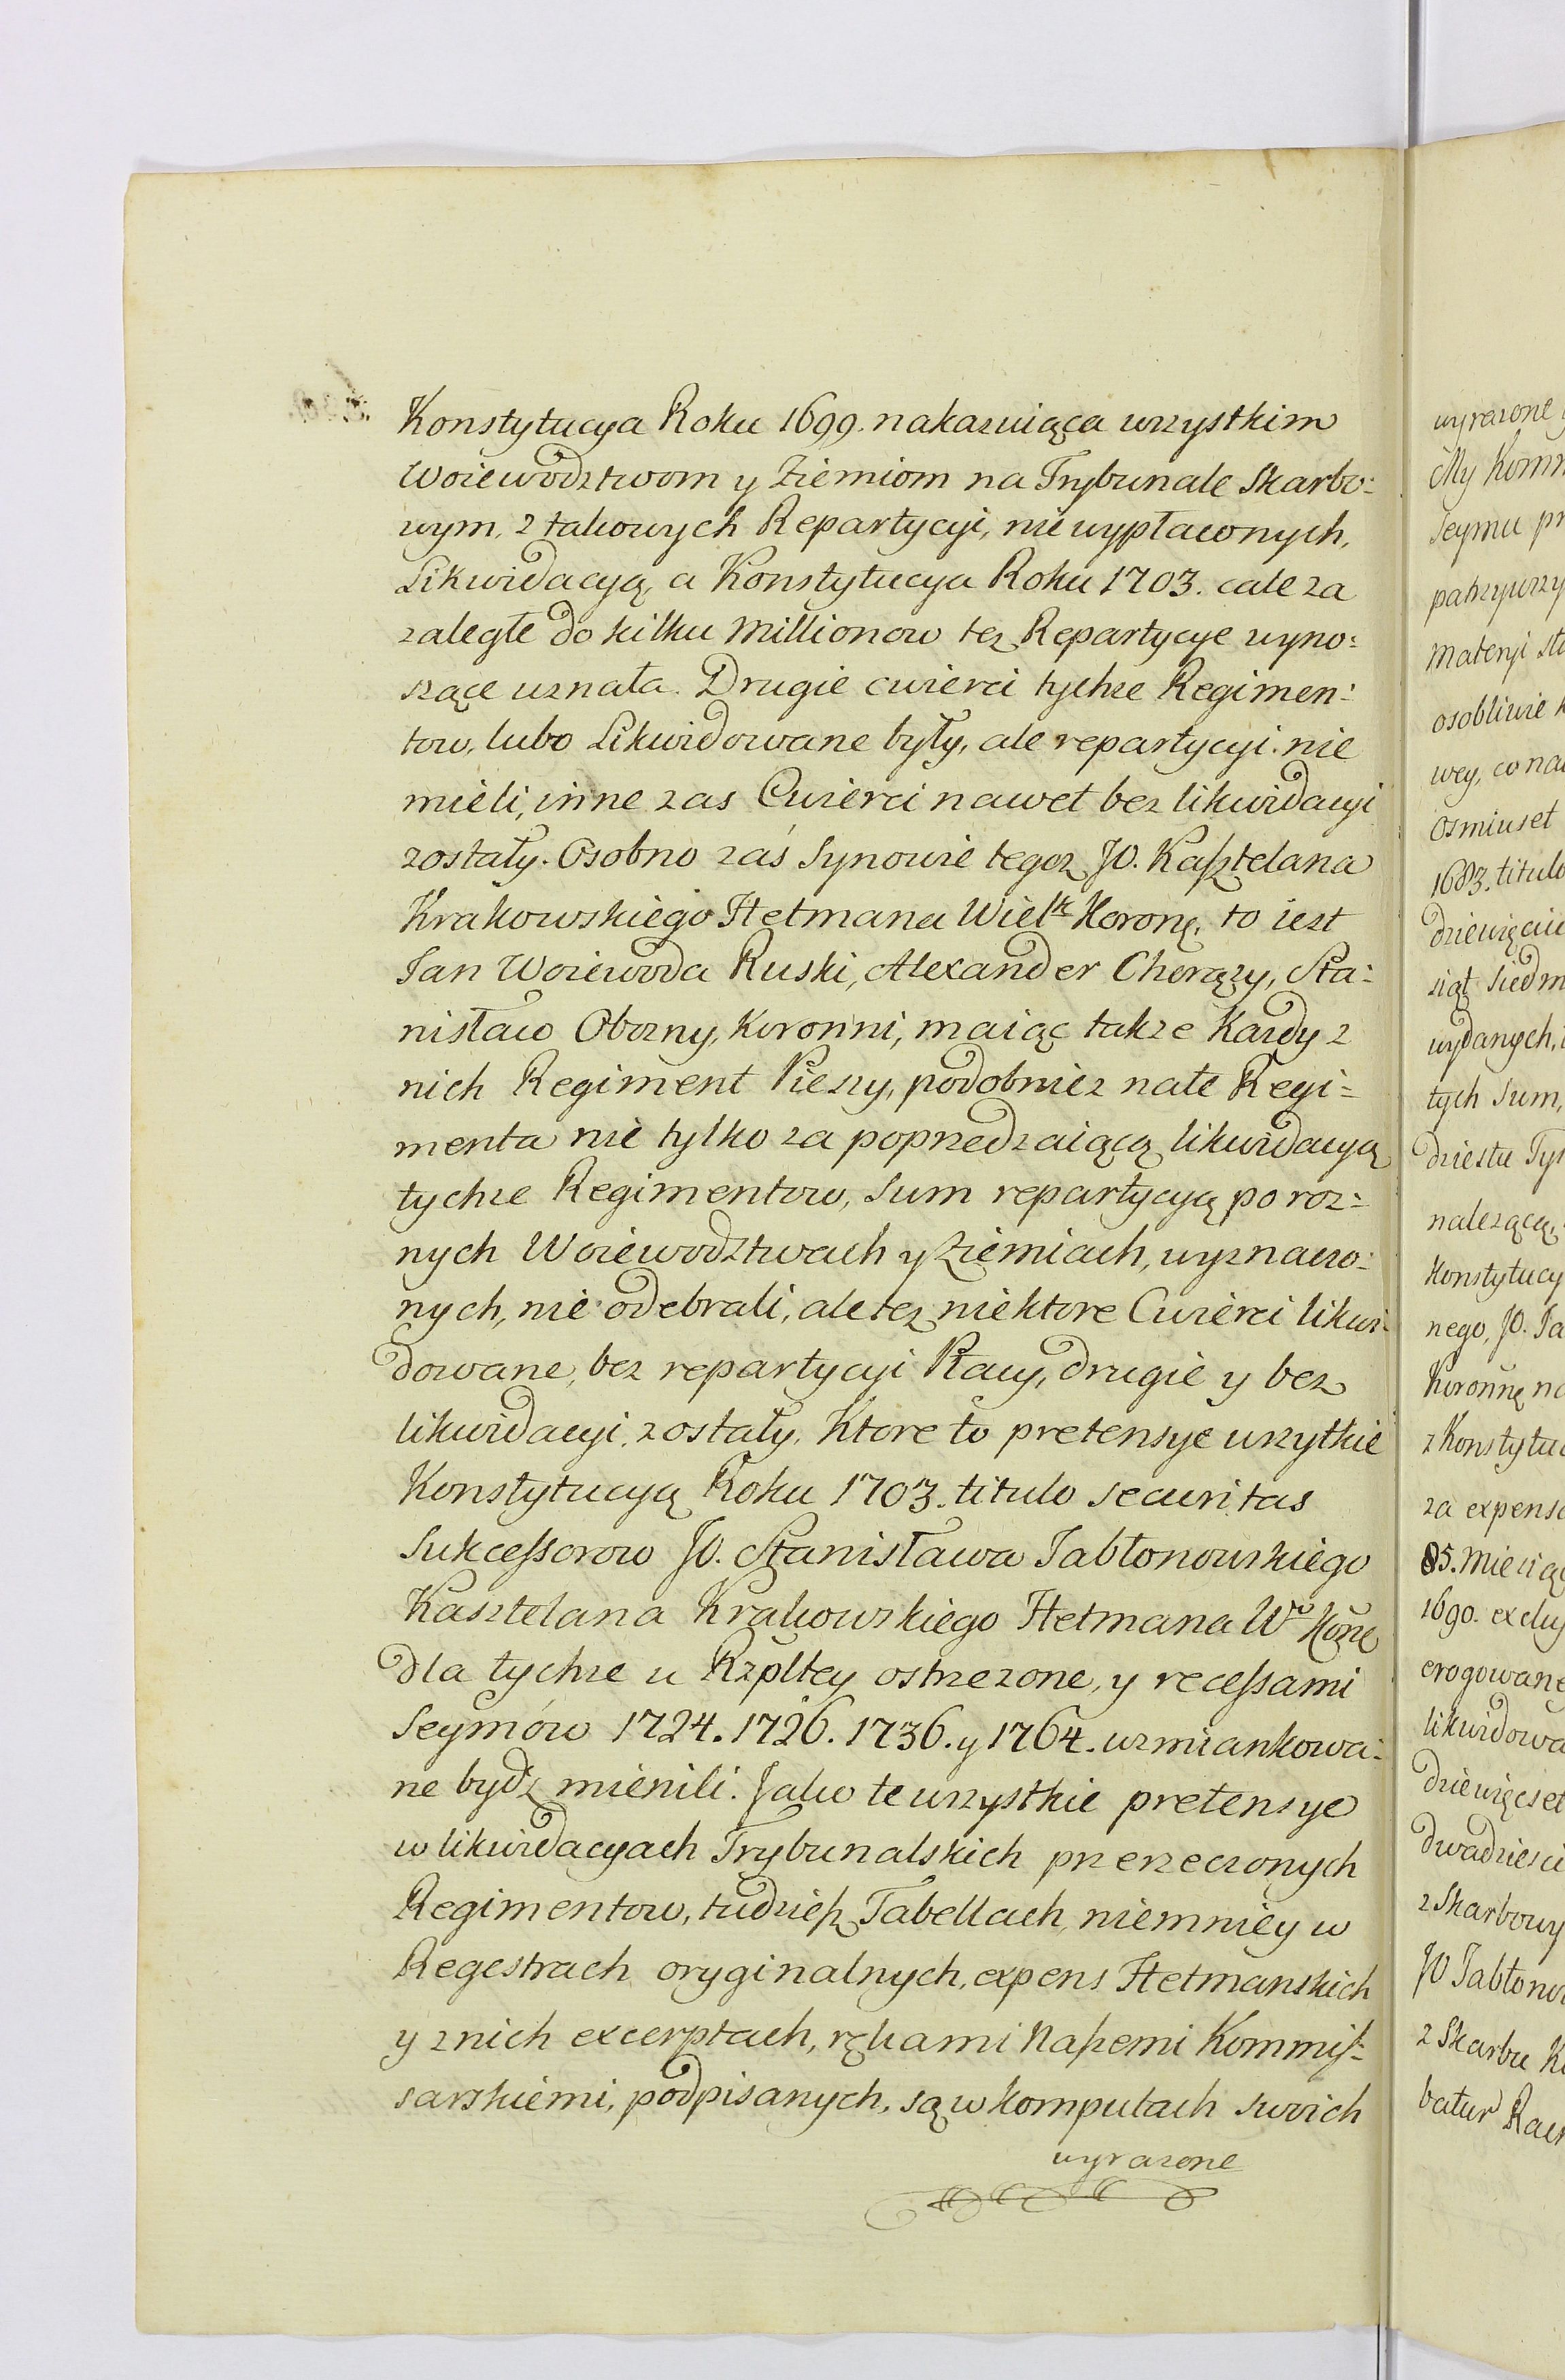 Konstytucya Roku 1699. nakazuiąca wszystkim
Woiewodztwom y Ziemiom na Trybunale Skarbo:
wym, z takowych Repartycyi, nie wypłaconych,
Likwidacyą, a Konstytucya Roku 1703. cale za
zaległe do kilku Millionow tez Repartycye wyno:
szące uznała. Drugie cwierci tychze Regimen:
tow, lubo Likwidowane były, ale repartycyi nie
mieli, inne zas Cwierci nawet bez likwidacyi
zostały. Osobno zaś Synowie tegoz JO. Kasztelana
Krakowskiego Hetmana Wielk Koronę, to iest
Jan Woiewoda Ruski, Alexander Chorązy, Sta:
nisław Obozny, Koronni, maiąc takze Kazdy z
nich Regiment Pieszy, podobniez na te Regi=
menta nie tylko za poprzedzaiącą likwidacyą
tychze Regimentow, Sum repartycyą po roz:
nych Woiewodztwach y Ziemiach, wyznaczo:
nych, nie odebrali, ale tez niektore Cwierci likwi:
dowane, bez repartycyi Racy, drugie y bez
likwidacyi zostały. Ktore to pretensye wszytkie
Konstytucyą Roku 1703. titulo securitas
Sukcessorow JO. Stanisława Jabłonowskiego
Kasztelana Krakowskiego Hetmana Wo Kone
dla tychze u Rzpltey ostrzezone, y recessami
Seymów 1724. 1726. 1736. y 1764. wzmiankowa:
ne bydz mienili. Jako te wszystkie pretensye
w likwidacyach Trybunalskich przerzeczonych
Regimentow, tudziesz Tabellach, niemniey w
Regestrach oryginalnych, expens Hetmanskich
y z nich excerptach, rękami Naszemi Kommis:
sarskiemi, podpisanych, są w komputach swoich
wyrazone
wyrazone
My Komm
Seymu pr
patrzywszy
Materyi
osobliwie
wey, co na
Osmiuset
1683. titulo
dziewięciu
siąt Siedm
wydanych,
tych Sum,
dziestu Tys
nalezącą,
Konstytucy
nego, JO. Ja
Koronnę
z Konstytuc
za expens
85. Miesiąc
1690.
erogowane
likwidowa
dziewięcset
dwadziesci
z Skarbowy
JO Jabłono
z Skarbu
batur